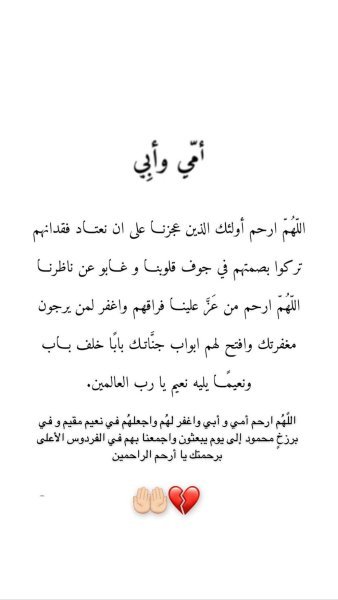 أمّي وأبِي
اللّهُمّ ارحم أولئك الذين عجزنـا على ان نعتـاد فقدانهم
تركوا بصمتهم في جوف قلوبنـا و غـابو عن ناظرنـا
اللّهُمّ ارحم من عَزَّ علينـا فراقهم واغفر لمن يرجون
مغفرتك وافتح لهم ابواب جنَّاتـك بابًا خلف بـاب
ونعيمًـا يليه نعيم يا رب العالمين.
اللّهُم ارحم أمـي و أبـي واغفر لهُم واجعلهُم فـي نعيم مقيم و فـي
برزخٍ محمود إلى يوم يبعثون واجمعنا بهم فـي الفردوس الأعلى
برحمتك يا أرحم الراحمين